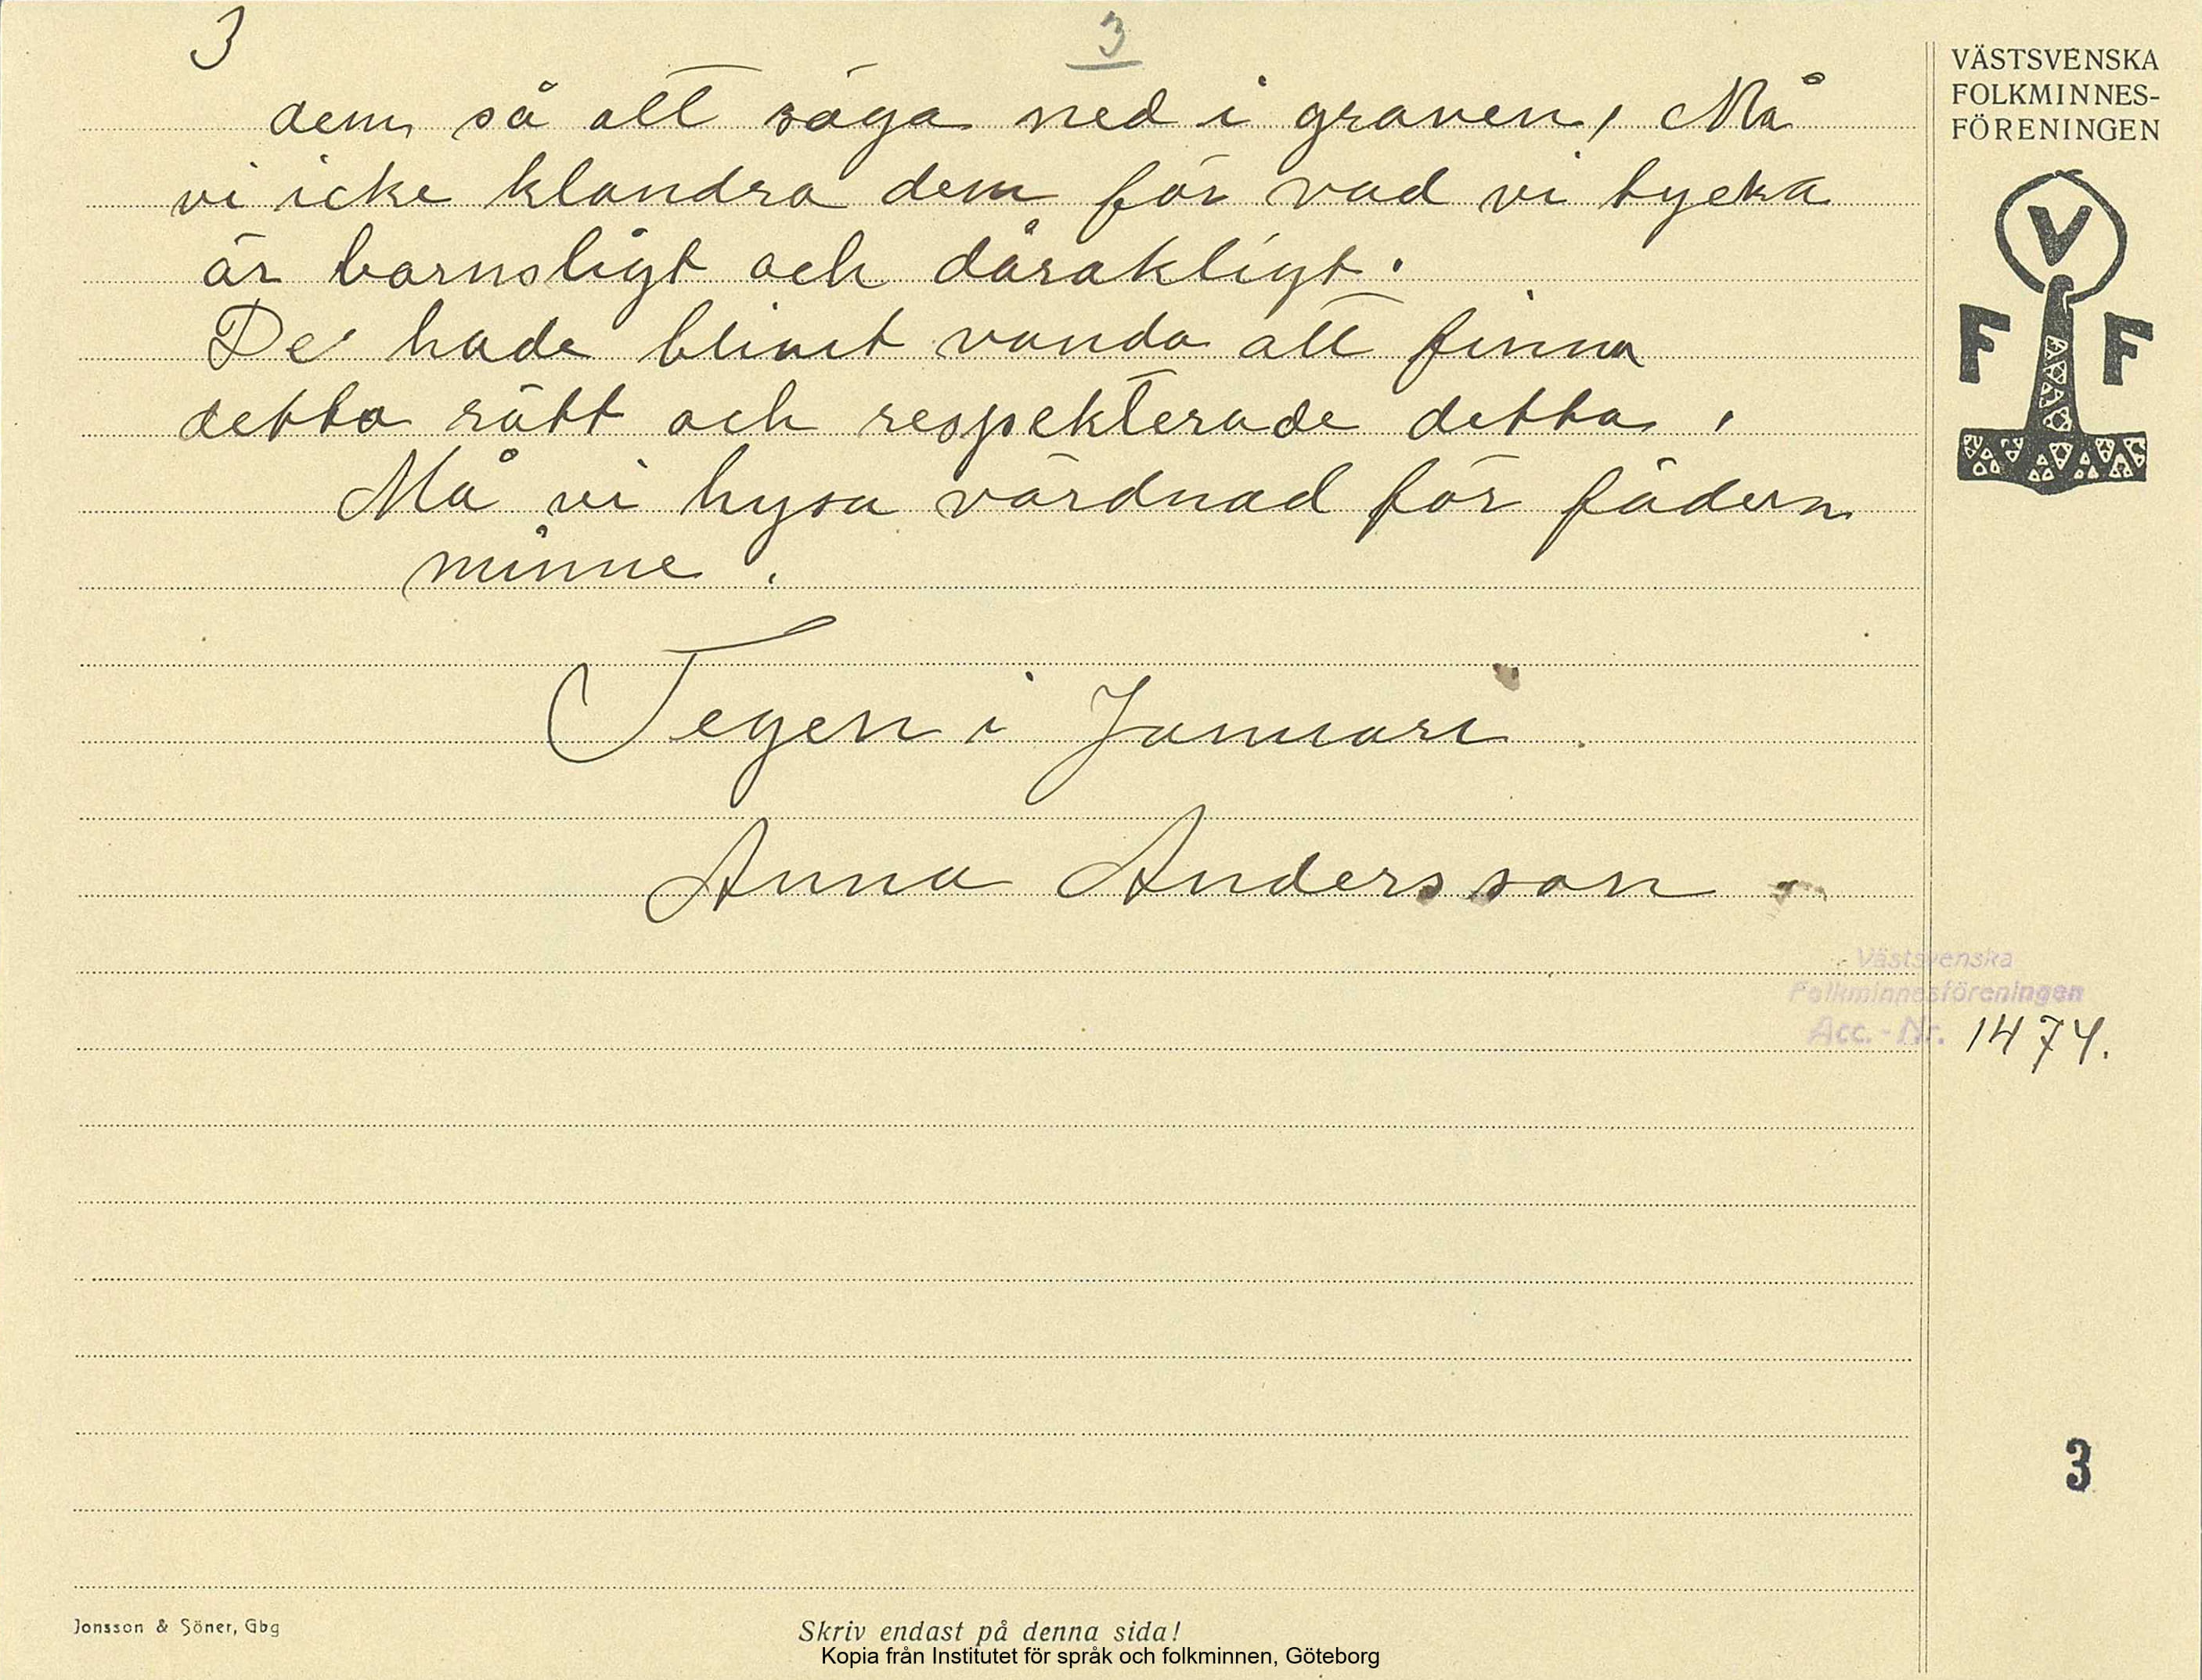 3
3
dem så att säga ned i graven, Må
vi icke klandra dem för vad vi tycka
är barnsligt och dårakligt.
De hade blivit vanda att finna
detta rätt och respekterade detta.
Må vi hysa vördnad för fädern
minne.
Tegen i Januari.
Anna Andersson
VÄSTSVENSKA
FOLKMINNES-
FÖRENINGEN
V
F F
Västsvenska
Folkminnesföreningen
Acc.-Nr. 1474.
3
Jonsson & Söner, Gbg
Skriv endast på denna sida!
Kopia från Institutet för språk och folkminnen, Göteborg